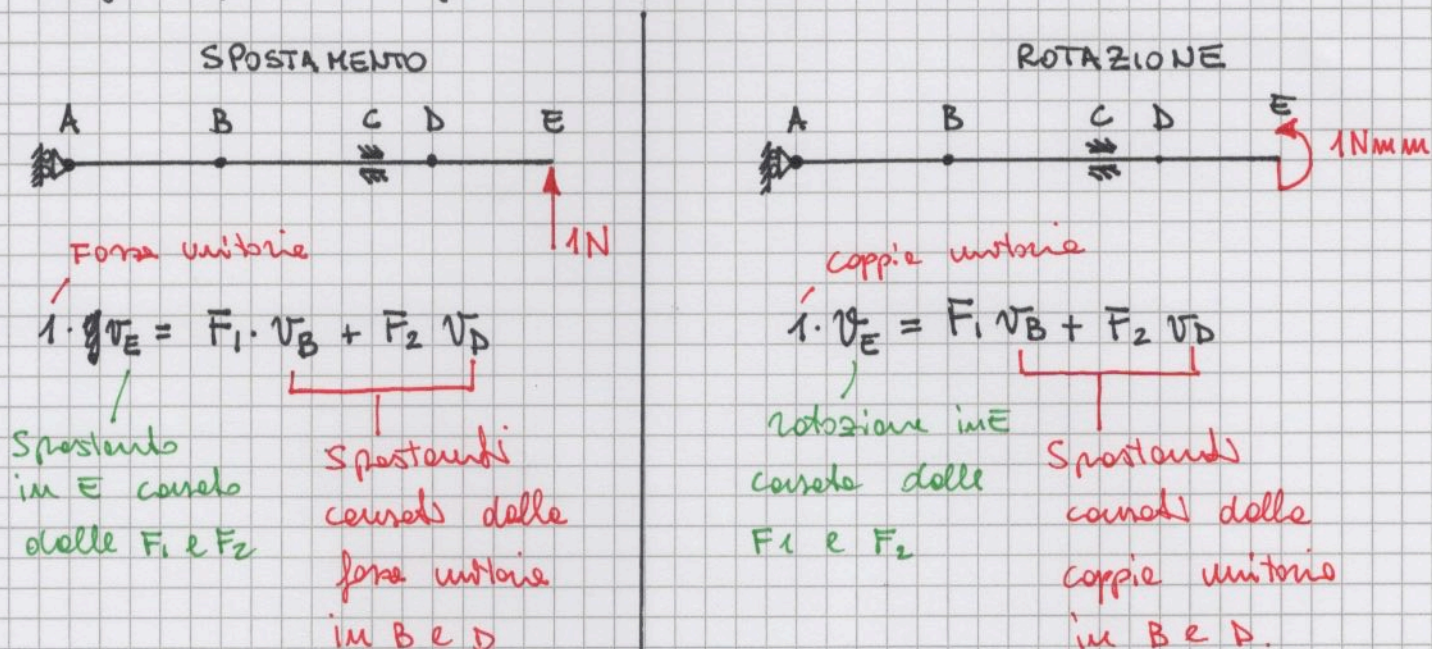 SPOSTAMENTO
A B C D E
1N
Forza unitaria
1 · v_E = F₁ · v_B + F₂ v_D
Spostamento
in E causato
dalle F₁ e F₂
Spostamenti
causati dalla
forza unitaria
in B e D
ROTAZIONE
A B C D E
1Nmm
coppia unitaria
1 · ϑ_E = F₁ v_B + F₂ v_D
rotazione in E
causata dalle
F1 e F₂
Spostamenti
causati dalla
coppia unitaria
in B e D.